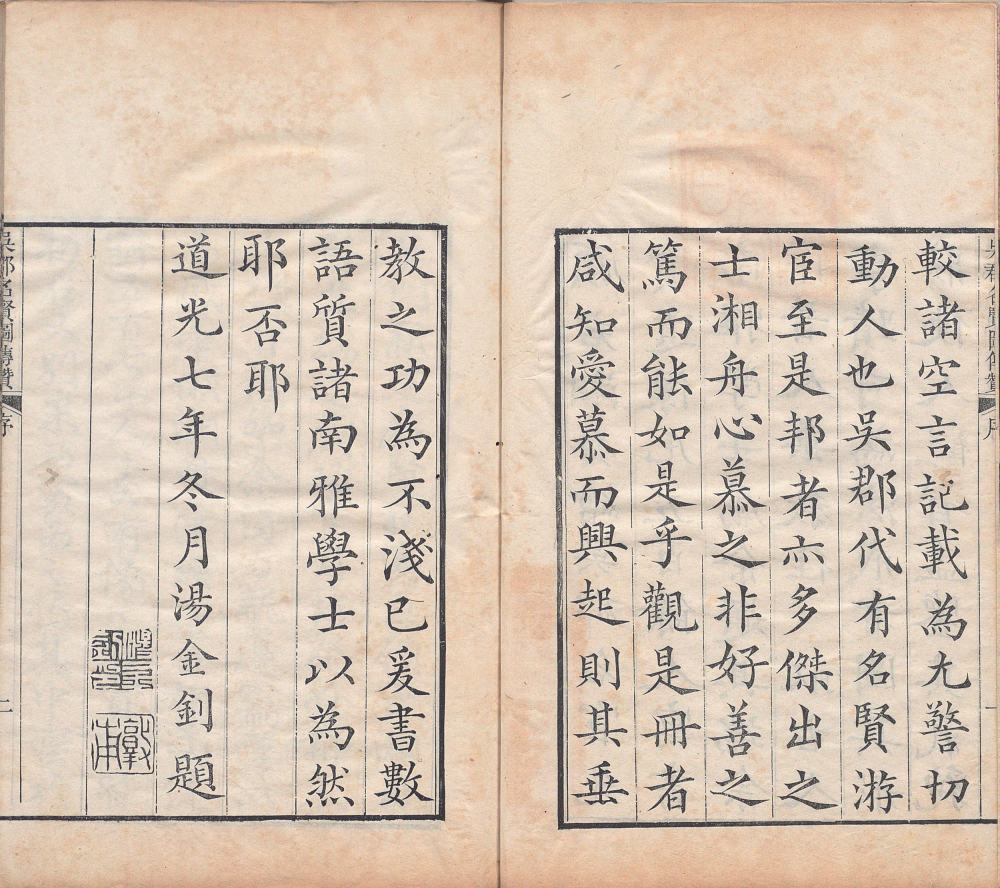 較諸空言記載為尤警切
動人也吳郡代有名賢游
宦至是邦者亦多傑出之
士湘舟心慕之非好善之
篤而能如是乎觀是冊者
咸知愛慕而興起則其垂
教之功為不淺已爰書數
語質諸南雅學士以為然
耶否耶
道光七年冬月湯金釗題
敦甫
吳郡名賢圖傳贊
序
二